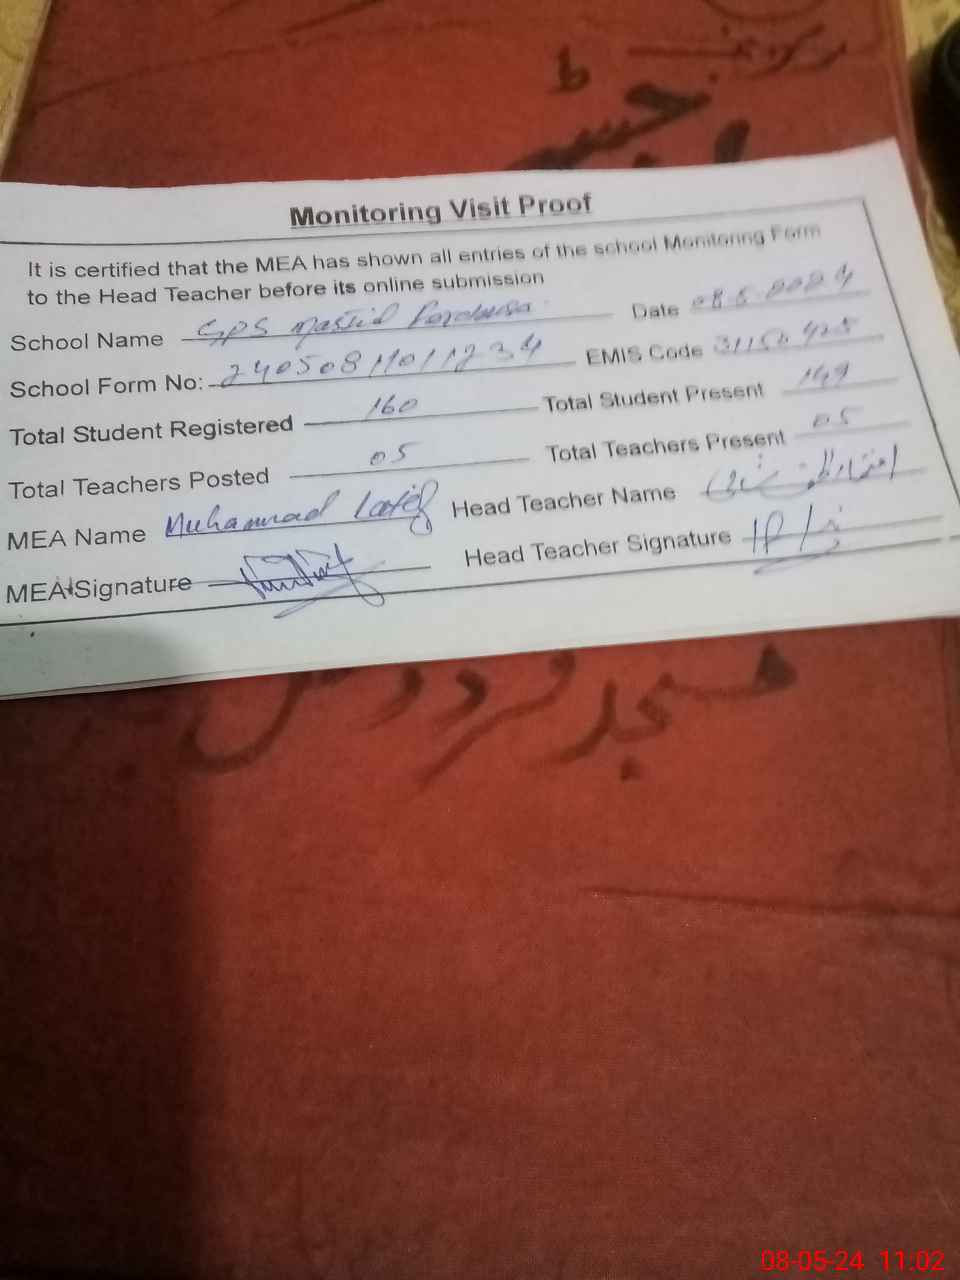 رجسٹر
Monitoring Visit Proof
It is certified that the MEA has shown all entries of the school Monitoring Form
to the Head Teacher before its online submission
School Name GPS Masjid Date 08.5.2024
School Form No: 24050811011234 EMIS Code 31150425
Total Student Registered 160 Total Student Present 149
Total Teachers Posted 05 Total Teachers Present 05
MEA Name Muhammad Latif Head Teacher Name
MEA Signature Head Teacher Signature
مسجد فردوس
08-05-24 11:02